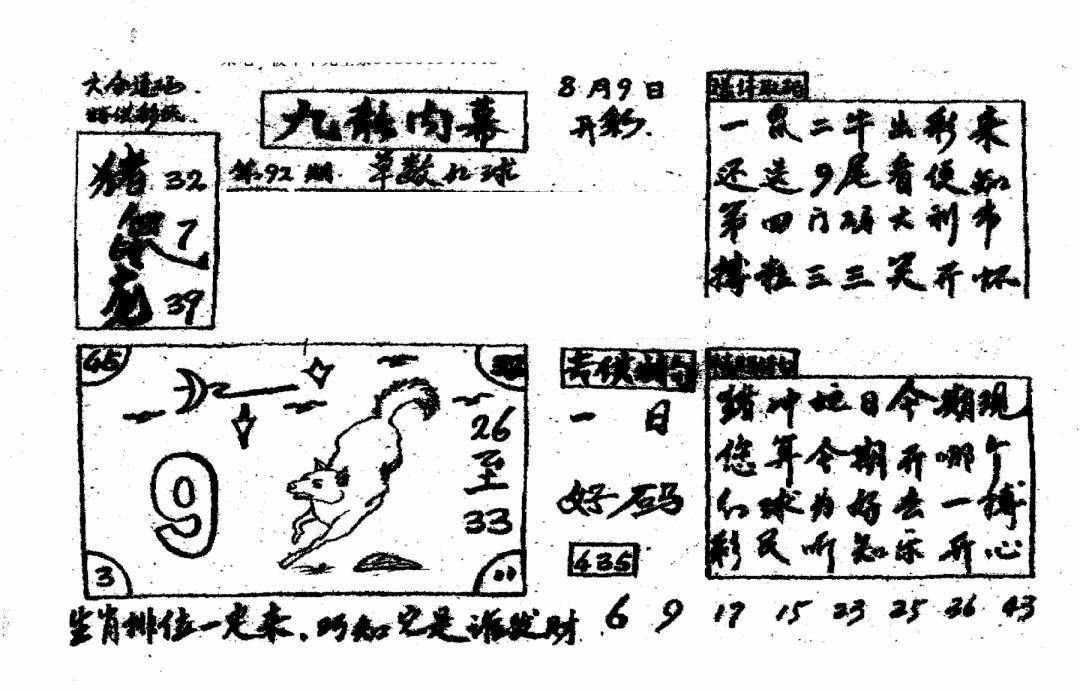 8月9日
开彩.
九龍内幕
第92期. 单数红球
猪 32
鼠 7
虎 39
一鼠二牛出彩来
还送9尾看便知
第四门码大利市
搏粒三三笑开怀
65
9
26
至
33
3
11
一日
好码
435
猪冲蛇日今期现
您算今期开哪个
红球为好去一搏
彩民听知乐开心
生肖排位一定来，巧知它是谁发财
6 9 17 15 23 25 36 43